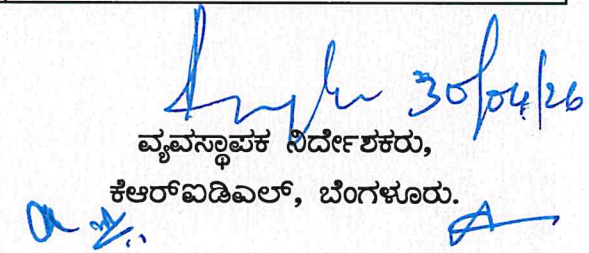 30/04/26
ವ್ಯವಸ್ಥಾಪಕ ನಿರ್ದೇಶಕರು,
ಕೆಆರ್‌ಐಡಿಎಲ್, ಬೆಂಗಳೂರು.